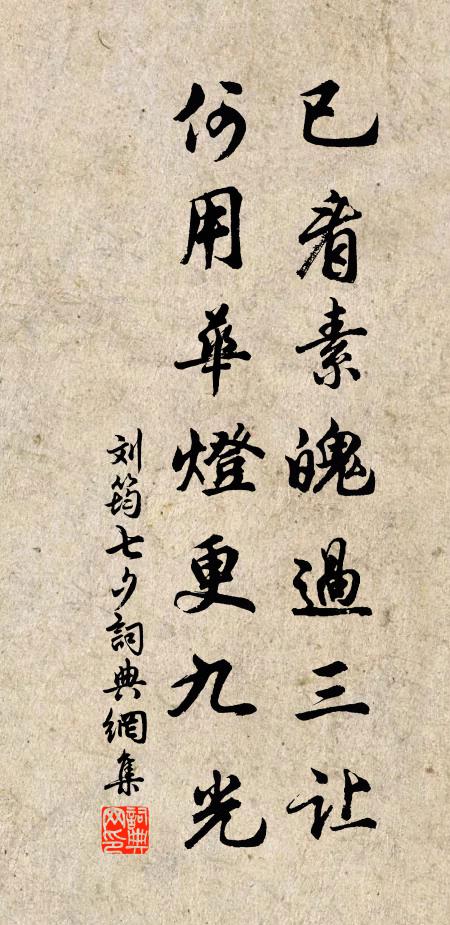 已看素魄過三让
何用華燈更九光
刘筠七夕詞典網集
詞典網印